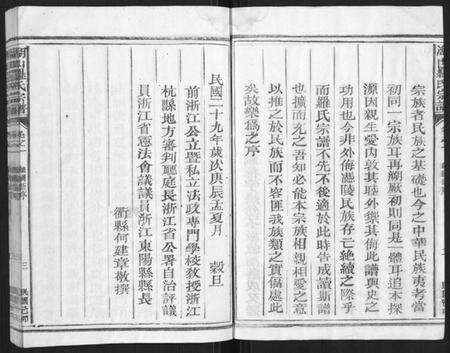 宗族者民族之基礎也今之中華民族夷考當
初同一宗族耳再溯厥初則同是一體耳追本探
源因親生愛內敦其睦外禦其侮此譜與史之
功用也今非外侮憑陵民族存亡絕續之際乎
而羅氏宗譜不先不後適於此時告成讀斯譜
也擴而充之吾知必能本宗族相親相愛之意
以推之於民族而不容匪我族類之獷偪處此
矣故樂為之序
民國二十九年歲次庚辰孟夏月 穀旦
前浙江公立暨私立法政專門學校教授浙江
杭縣地方審判廳庭長浙江省公署自治評議
員浙江省憲法會議議員浙江東陽縣縣長
衢縣何建章敬撰
山羅氏宗譜
三